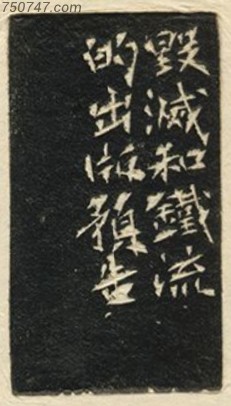 750747.com
毀滅和鐵流
的出版預告